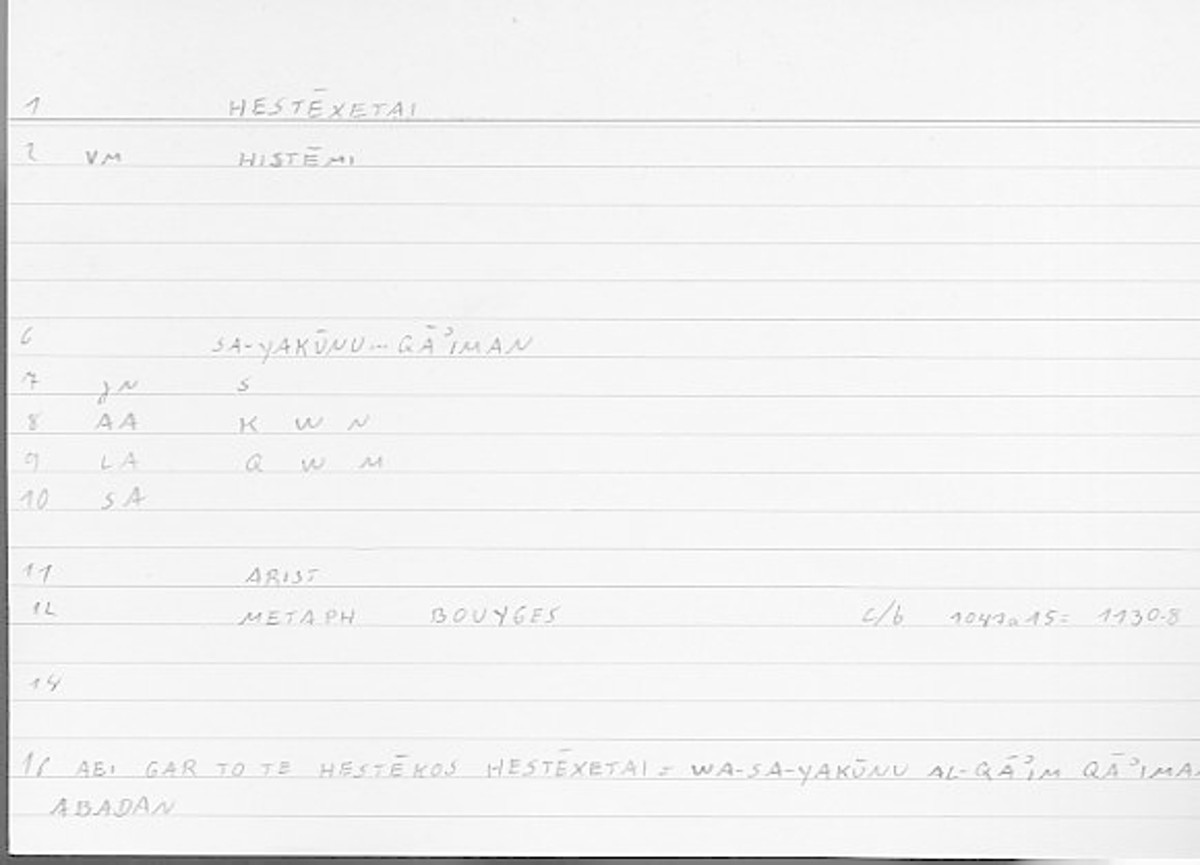 1 HESTĒXETAI
2 VM HISTĒMI
6 SA-YAKŪNU... QĀʾIMAN
7 JN S
8 AA K W N
9 LA Q W M
10 SA
11 ARIST
12 METAPH BOUYGES C/b 1047a15= 1130.8
14
15 AEI GAR TO TE HESTĒKOS HESTĒXETAI = WA-SA-YAKŪNU AL-QĀʾIM QĀʾIMAN
ABADAN